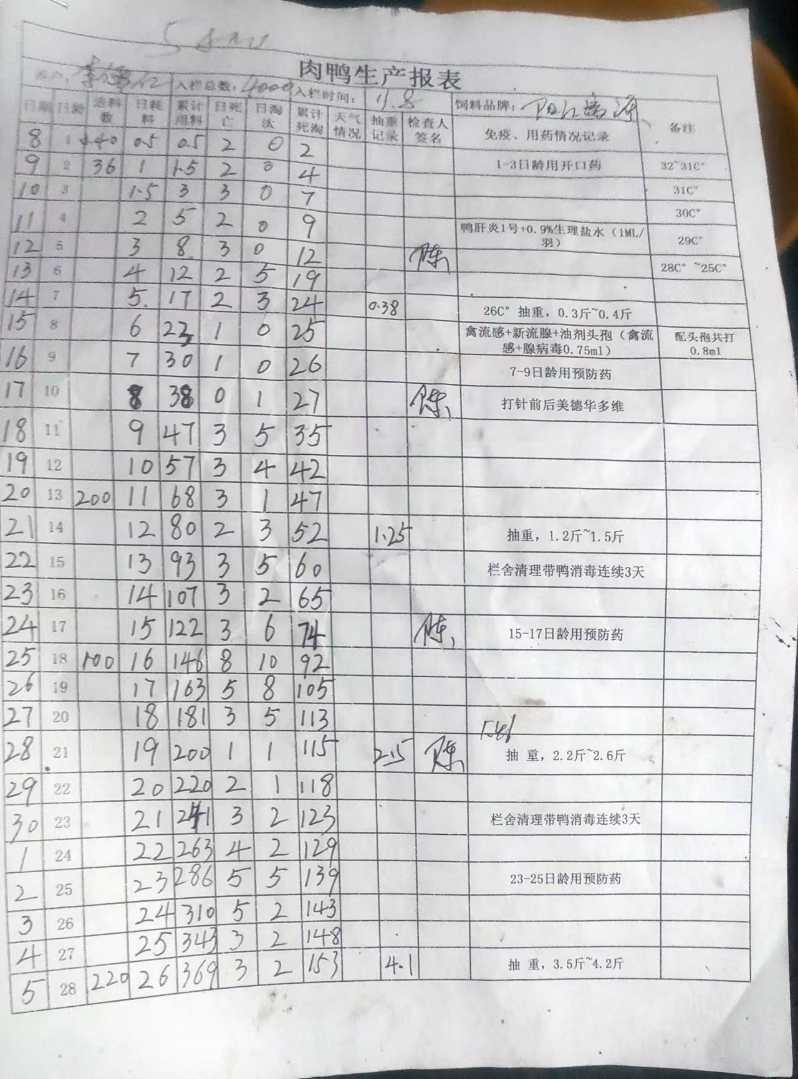 肉鸭生产报表
入栏总数：4000 入栏时间：11.8 饲料品牌：
日期 日龄 送料数 日耗料 累计用料 日死亡 日淘汰 累计死淘 天气情况 抽重记录 检查人签名 免疫、用药情况记录 备注
8 1 440 0.5 0.5 2 0 2
9 2 36 1 1.5 2 0 4 1-3日龄用开口药 32~31C°
10 3 1.5 3 3 0 7 31C°
11 4 2 5 2 0 9 30C°
12 5 3 8 3 0 12 陈 鸭肝炎1号+0.9%生理盐水（1ML/羽） 29C°
13 6 4 12 2 5 19 28C°~25C°
14 7 5 17 2 3 24 0.38 26C°抽重，0.3斤~0.4斤
15 8 6 23 1 0 25 禽流感+新流腺+油剂头孢（禽流感+腺病毒0.75ml） 配头孢共打0.8ml
16 9 7 30 1 0 26 7-9日龄用预防药
17 10 8 38 0 1 27 陈 打针前后美德华多维
18 11 9 47 3 5 35
19 12 10 57 3 4 42
20 13 200 11 68 3 1 47
21 14 12 80 2 3 52 1.25 抽重，1.2斤~1.5斤
22 15 13 93 3 5 60 栏舍清理带鸭消毒连续3天
23 16 14 107 3 2 65
24 17 15 122 3 6 74 陈 15-17日龄用预防药
25 18 100 16 146 8 10 92
26 19 17 163 5 8 105
27 20 18 181 3 5 113
28 21 19 200 1 1 115 2.15 陈 抽 重，2.2斤~2.6斤
29 22 20 220 2 1 118
30 23 21 241 3 2 123 栏舍清理带鸭消毒连续3天
1 24 22 263 4 2 129
2 25 23 286 5 5 139 23-25日龄用预防药
3 26 24 310 5 2 143
4 27 25 343 3 2 148
5 28 220 26 369 3 2 153 4.1 抽 重，3.5斤~4.2斤